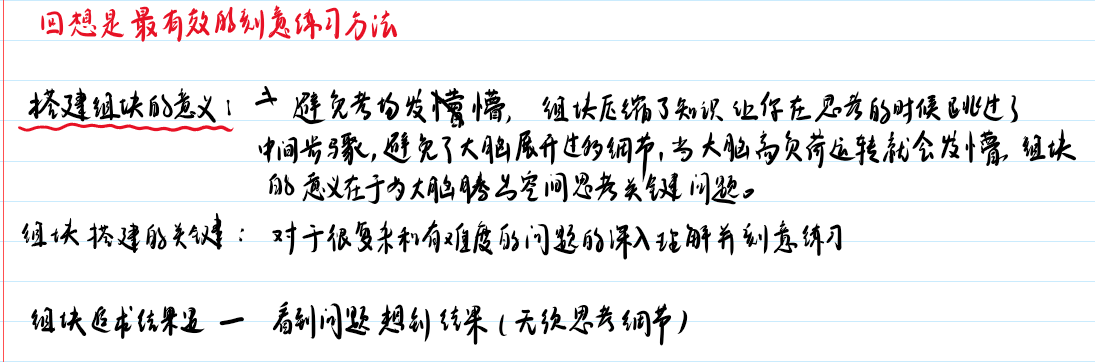 回想是最有效的刻意练习方法
搭建组块的意义: → 避免考场发懵懵, 组块压缩了知识 让你在思考的时候跳过了
中间步骤, 避免了大脑展开过多细节, 当大脑高负荷运转就会发懵 组块
的意义在于为大脑腾出空间思考关键问题。
组块搭建的关键: 对于很复杂和有难度的问题的深入理解并刻意练习
组块追求结果是 — 看到问题想到结果(无须思考细节)